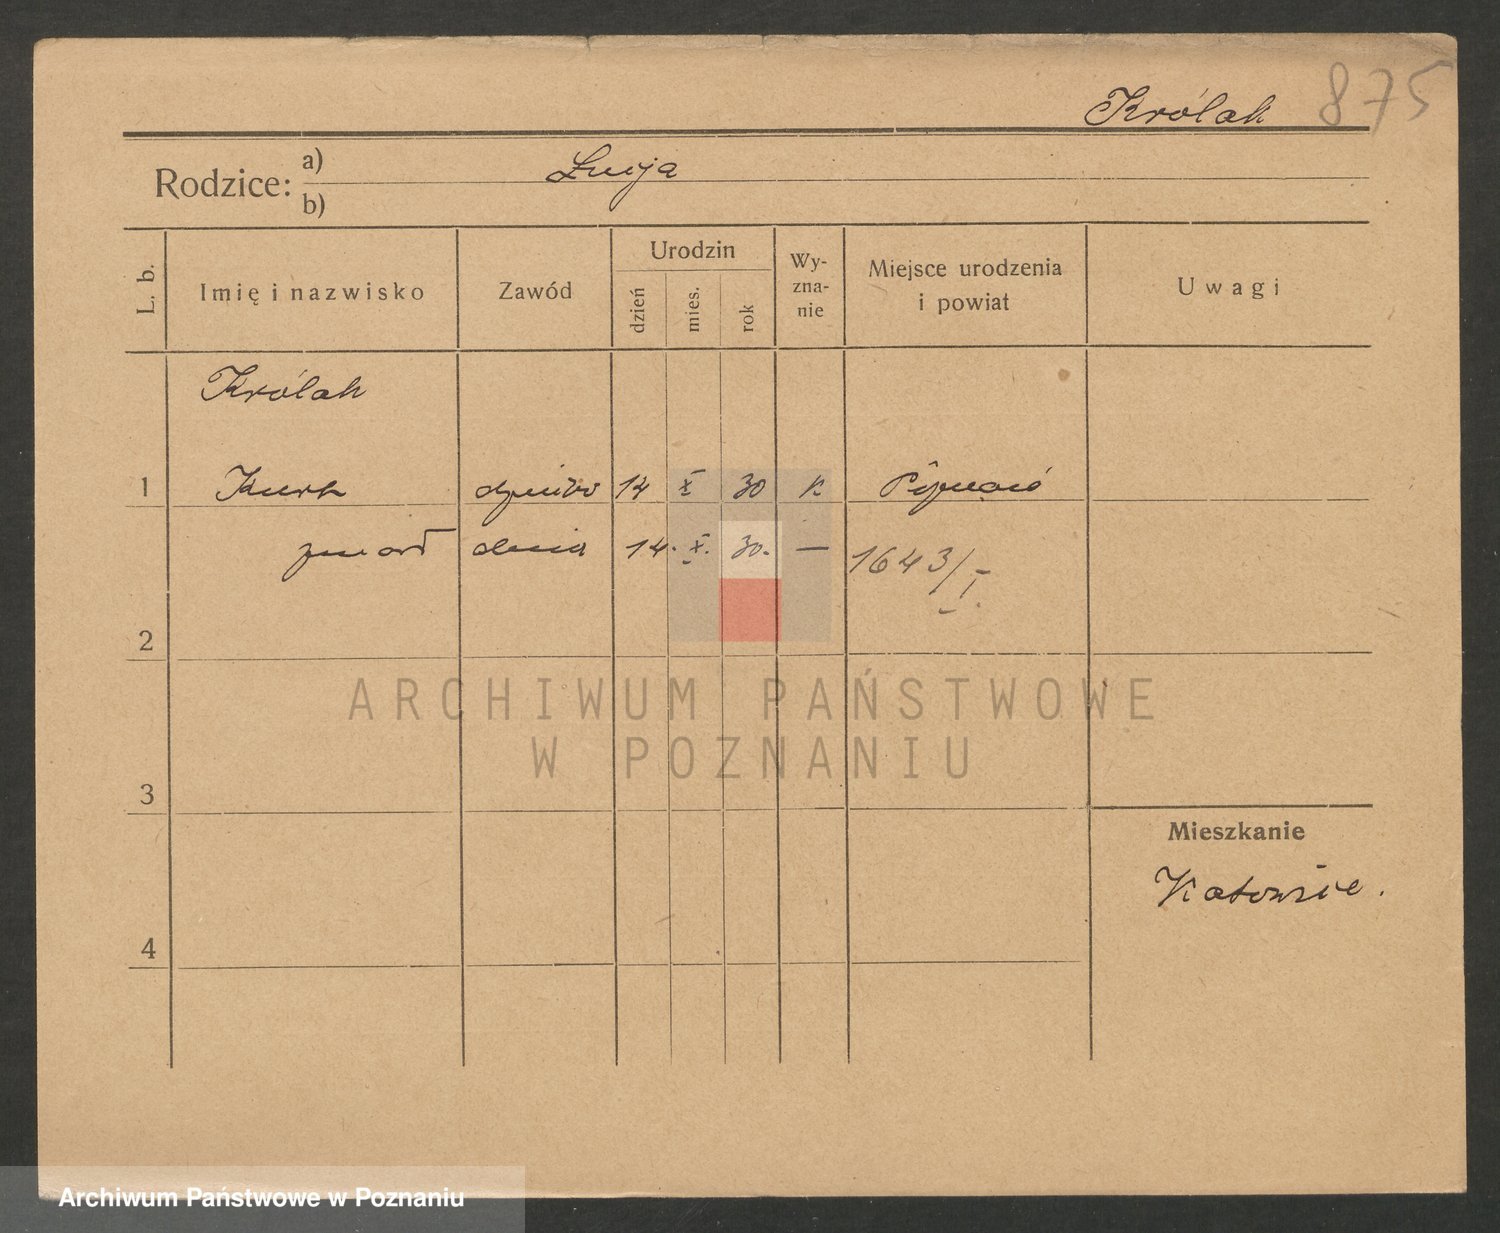 Królak 875
Rodzice: a) Luija
b)
L. b. Imię i nazwisko Zawód Urodzin dzień mies. rok Wy-zna-nie Miejsce urodzenia i powiat Uwagi
Królak
1 Kurt 14 X 30 K Poznań
zmarł dnia 14. X. 30. — 1643/I.
2
ARCHIWUM PAŃSTWOWE
W POZNANIU
3
Mieszkanie
Katowice.
4
Archiwum Państwowe w Poznaniu